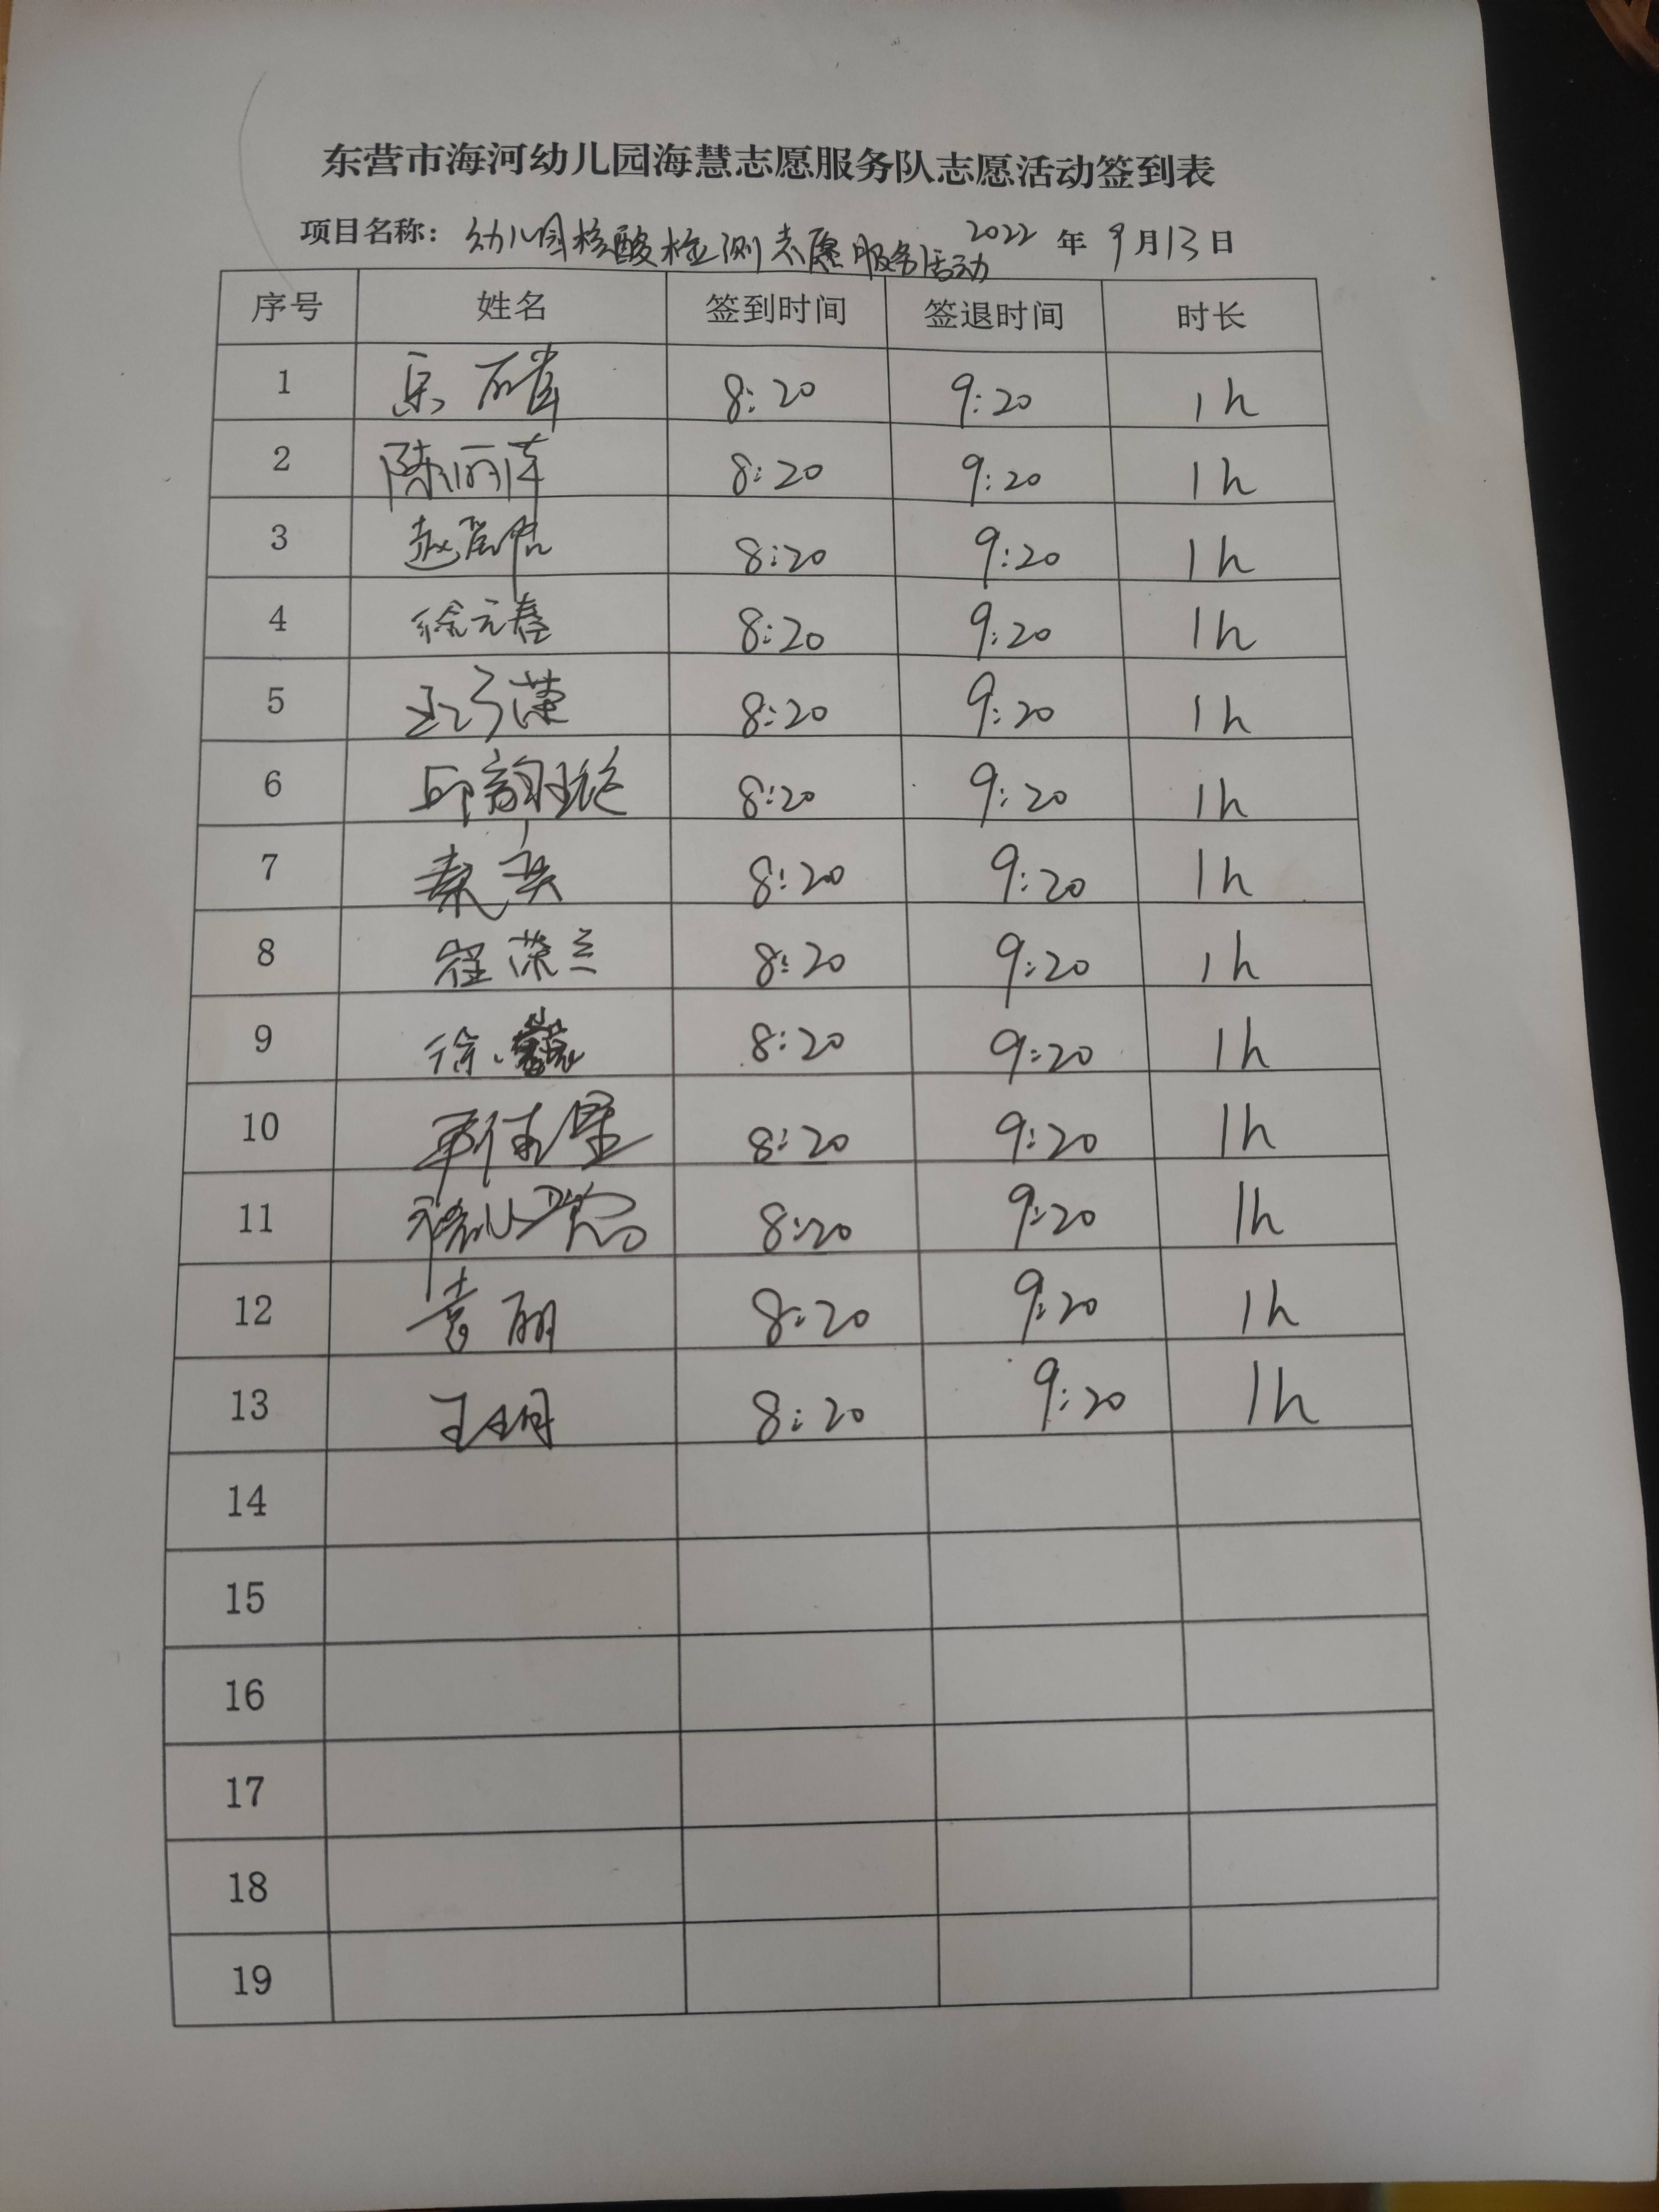 东营市海河幼儿园海慧志愿服务队志愿活动签到表
项目名称：幼儿园核酸检测志愿服务活动 2022 年 9 月 13 日
序号 姓名 签到时间 签退时间 时长
1 8:20 9:20 1h
2 陈 8:20 9:20 1h
3 赵 8:20 9:20 1h
4 徐元春 8:20 9:20 1h
5 8:20 9:20 1h
6 邱韵 8:20 9:20 1h
7 秦 8:20 9:20 1h
8 程荣兰 8:20 9:20 1h
9 徐 8:20 9:20 1h
10 8:20 9:20 1h
11 8:20 9:20 1h
12 袁丽 8:20 9:20 1h
13 王 8:20 9:20 1h
14
15
16
17
18
19